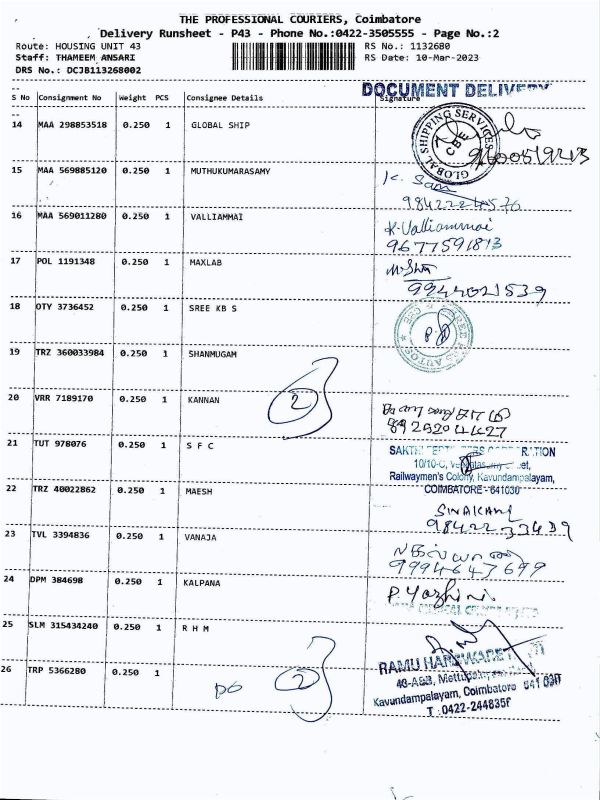 THE PROFESSIONAL COURIERS, Coimbatore
Delivery Runsheet - P43 - Phone No.:0422-3505555 - Page No.:2
Route: HOUSING UNIT 43
RS No.: 1132680
Staff: THAMEEM ANSARI
RS Date: 10-Mar-2023
DRS No.: DCJB113268002
DOCUMENT DELIVERY
S No Consignment No Weight PCS Consignee Details Signature
14 MAA 298853518 0.250 1 GLOBAL SHIP
GLOBAL SHIPPING SERVICES
CBE
15 MAA 569885120 0.250 1 MUTHUKUMARASAMY
K. Sam
16 MAA 569011280 0.250 1 VALLIAMMAI
K. Valliammai
9677591813
17 POL 1191348 0.250 1 MAXLAB
9944021539
18 OTY 3736452 0.250 1 SREE KB S
19 TRZ 360033984 0.250 1 SHANMUGAM
20 VRR 7189170 0.250 1 KANNAN
2
21 TUT 978076 0.250 1 S F C
10/10-C,
Railwaymen's Colony, Kavundampalayam,
COIMBATORE - 641030
22 TRZ 40022862 0.250 1 MAESH
23 TVL 3394836 0.250 1 VANAJA
9994647699
24 DPM 384698 0.250 1 KALPANA
P. Yazhini
25 SLM 315434240 0.250 1 R H M
RAMU HARDWARE
26 TRP 5366280 0.250 1
2
Kavundampalayam, Coimbatore 641 030
T : 0422-244835